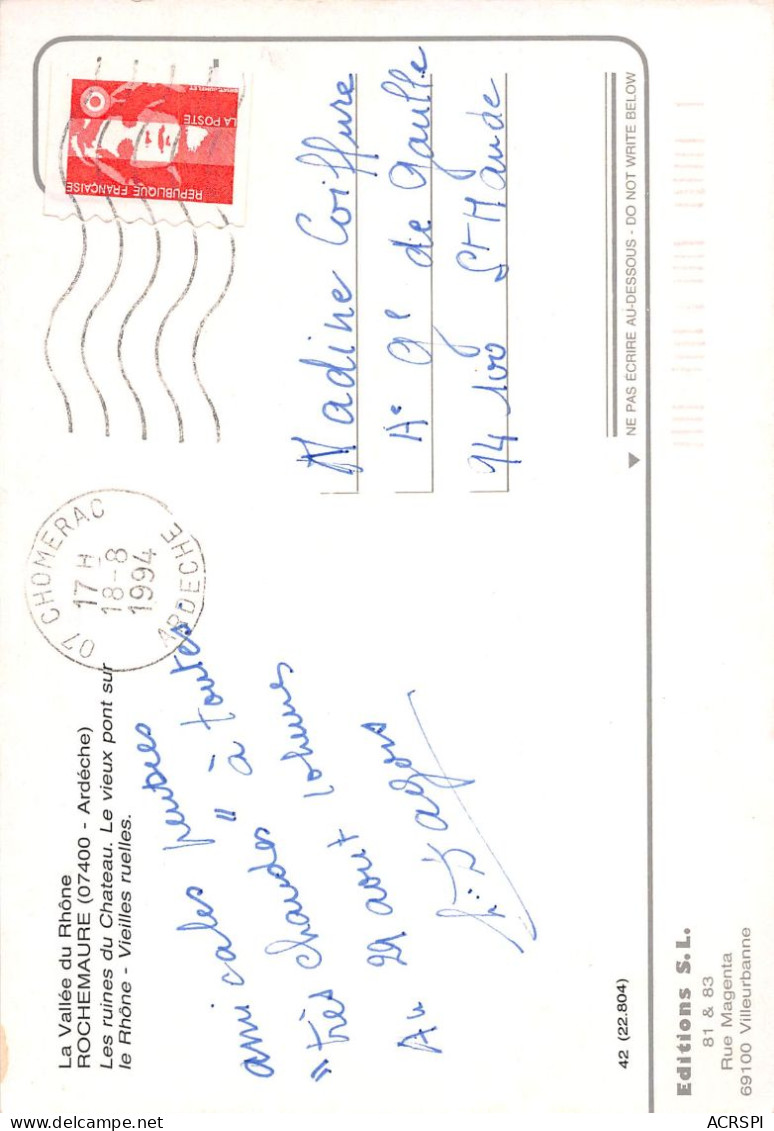 La Vallée du Rhône
ROCHEMAURE (07400 - Ardéche)
Les ruines du Chateau. Le vieux pont sur
le Rhône - Vieilles ruelles.
07 CHOMERAC
17 H
18-8
1994
ARDECHE
LA POSTE
REPUBLIQUE FRANÇAISE
amicales pensées
"très chaudes" à toutes
Au 29 aout
Nadine Coiffure
Ae Ge de Gaulle
94 100 St Mande
NE PAS ÉCRIRE AU-DESSOUS - DO NOT WRITE BELOW
42 (22.804)
Editions S.L.
81 & 83
Rue Magenta
69100 Villeurbanne
ACRSPI